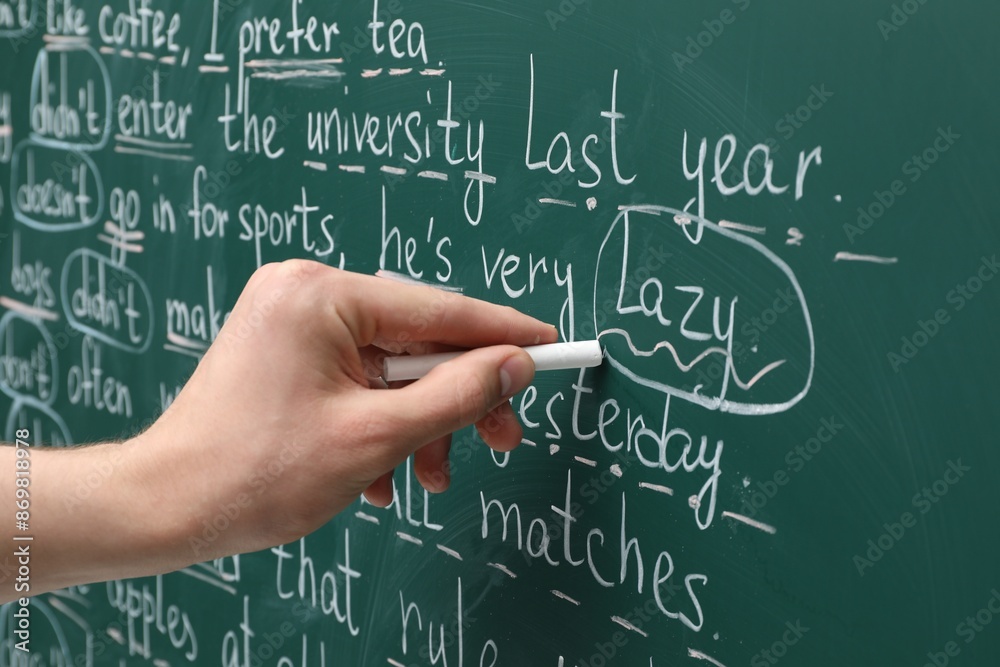 like coffee, I prefer tea.
didn't enter the university last year.
doesn't go in for sports, he's very Lazy
boys didn't make
don't often yesterday
matches
that rule
apples at
Adobe Stock | #869818978